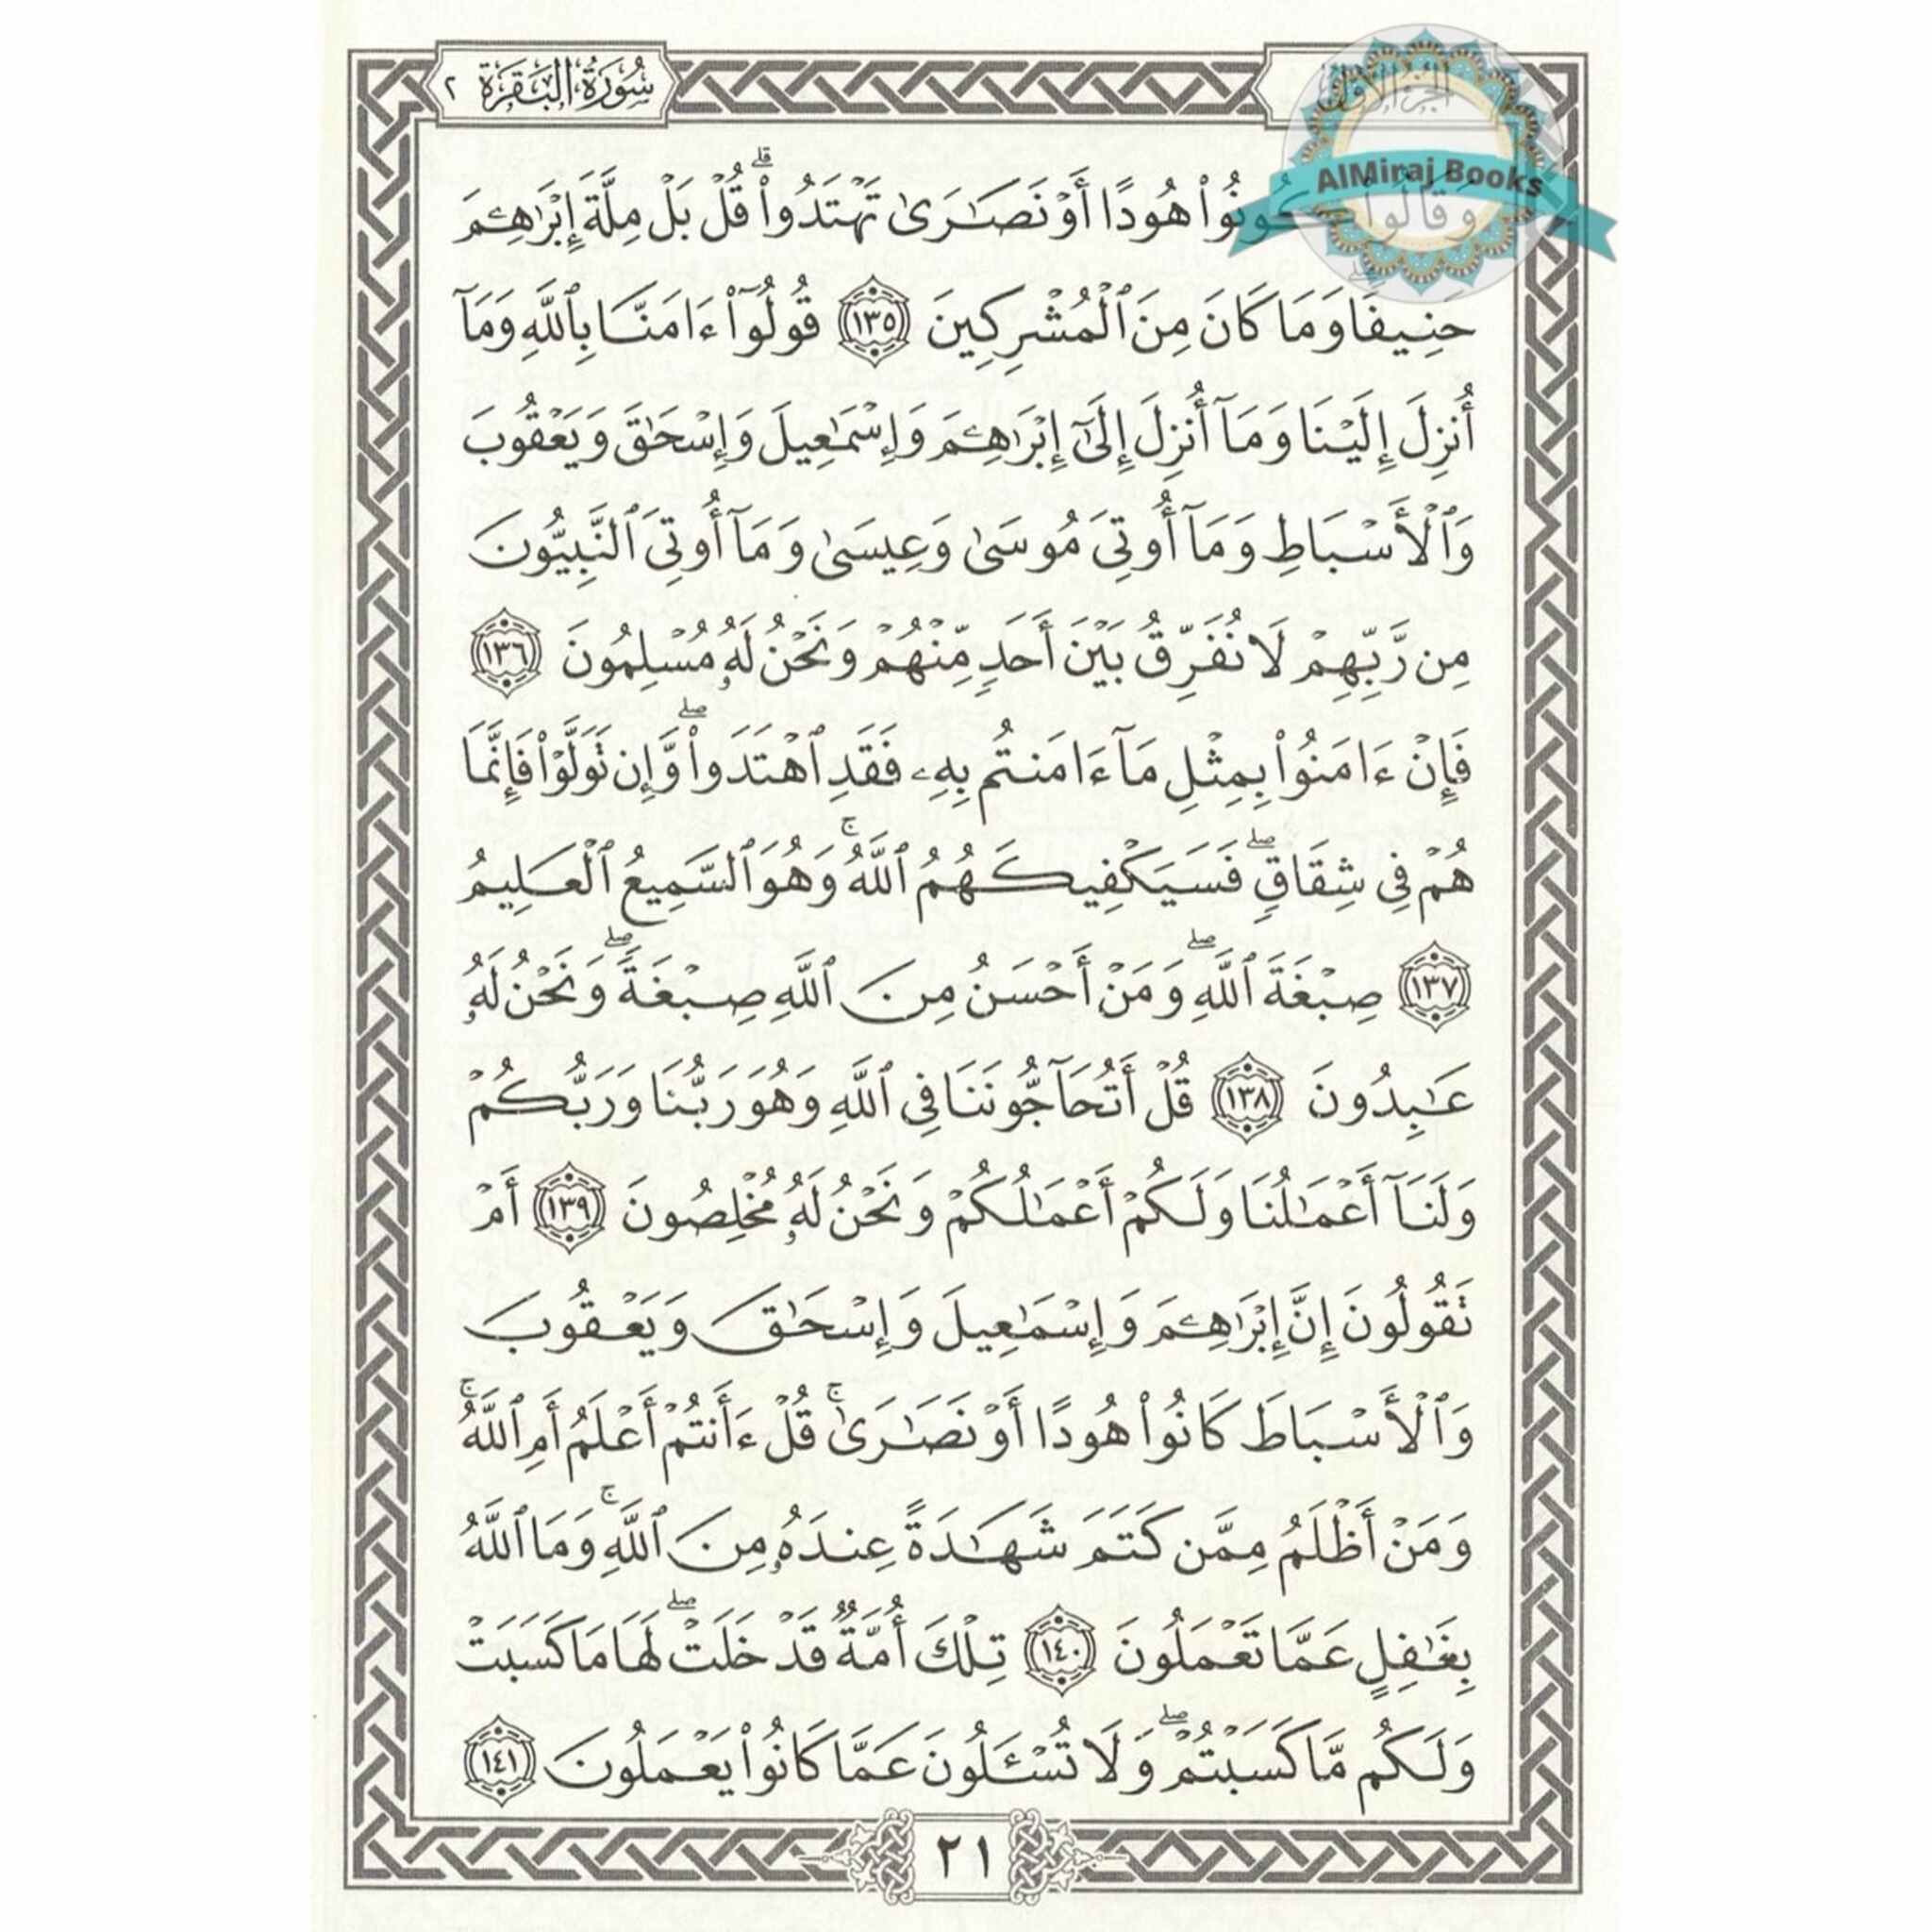 سُورَةُ البَقَرَة ٢
الجزء الأول
AlMiraj Books
وَقَالُوا۟ كُونُوا۟ هُودًا أَوْ نَصَـٰرَىٰ تَهْتَدُوا۟ ۗ قُلْ بَلْ مِلَّةَ إِبْرَٰهِـۧمَ
حَنِيفًا وَمَا كَانَ مِنَ ٱلْمُشْرِكِينَ ١٣٥ قُولُوٓا۟ ءَامَنَّا بِٱللَّهِ وَمَآ
أُنزِلَ إِلَيْنَا وَمَآ أُنزِلَ إِلَىٰٓ إِبْرَٰهِـۧمَ وَإِسْمَـٰعِيلَ وَإِسْحَـٰقَ وَيَعْقُوبَ
وَٱلْأَسْبَاطِ وَمَآ أُوتِىَ مُوسَىٰ وَعِيسَىٰ وَمَآ أُوتِىَ ٱلنَّبِيُّونَ
مِن رَّبِّهِمْ لَا نُفَرِّقُ بَيْنَ أَحَدٍ مِّنْهُمْ وَنَحْنُ لَهُۥ مُسْلِمُونَ ١٣٦
فَإِنْ ءَامَنُوا۟ بِمِثْلِ مَآ ءَامَنتُم بِهِۦ فَقَدِ ٱهْتَدَوا۟ ۖ وَّإِن تَوَلَّوْا۟ فَإِنَّمَا
هُمْ فِى شِقَاقٍ ۖ فَسَيَكْفِيكَهُمُ ٱللَّهُ ۚ وَهُوَ ٱلسَّمِيعُ ٱلْعَلِيمُ
١٣٧ صِبْغَةَ ٱللَّهِ ۖ وَمَنْ أَحْسَنُ مِنَ ٱللَّهِ صِبْغَةً ۖ وَنَحْنُ لَهُۥ
عَـٰبِدُونَ ١٣٨ قُلْ أَتُحَآجُّونَنَا فِى ٱللَّهِ وَهُوَ رَبُّنَا وَرَبُّكُمْ
وَلَنَآ أَعْمَـٰلُنَا وَلَكُمْ أَعْمَـٰلُكُمْ وَنَحْنُ لَهُۥ مُخْلِصُونَ ١٣٩ أَمْ
تَقُولُونَ إِنَّ إِبْرَٰهِـۧمَ وَإِسْمَـٰعِيلَ وَإِسْحَـٰقَ وَيَعْقُوبَ
وَٱلْأَسْبَاطَ كَانُوا۟ هُودًا أَوْ نَصَـٰرَىٰ ۚ قُلْ ءَأَنتُمْ أَعْلَمُ أَمِ ٱللَّهُ ۚ
وَمَنْ أَظْلَمُ مِمَّن كَتَمَ شَهَـٰدَةً عِندَهُۥ مِنَ ٱللَّهِ ۚ وَمَا ٱللَّهُ
بِغَـٰفِلٍ عَمَّا تَعْمَلُونَ ١٤٠ تِلْكَ أُمَّةٌ قَدْ خَلَتْ ۖ لَهَا مَا كَسَبَتْ
وَلَكُم مَّا كَسَبْتُمْ ۖ وَلَا تُسْـَٔلُونَ عَمَّا كَانُوا۟ يَعْمَلُونَ ١٤١
٢١